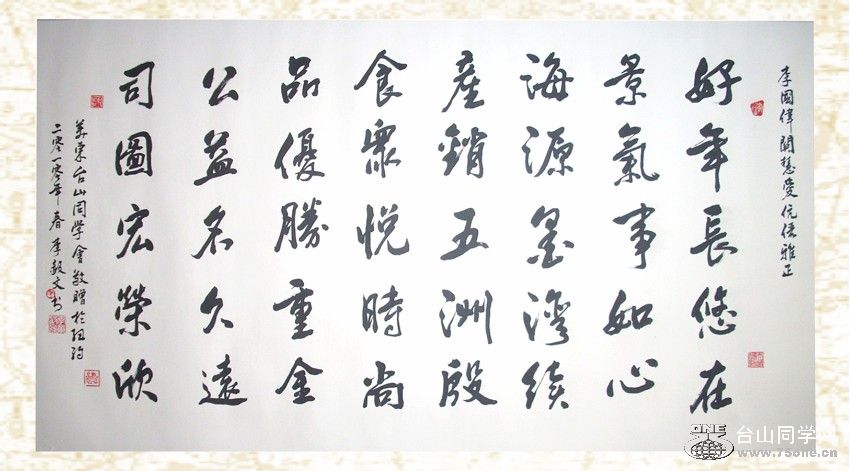 李國偉關慧愛伉儷雅正
好年長悠在
景氣事如心
海源灣績
產銷五洲殷
食眾悅時尚
品優勝重金
公益名久遠
司圖宏榮欣
美東台山同學會敬贈於紐約
二零一零年春李毅文书
ONE
台山同学
www.75one.cn